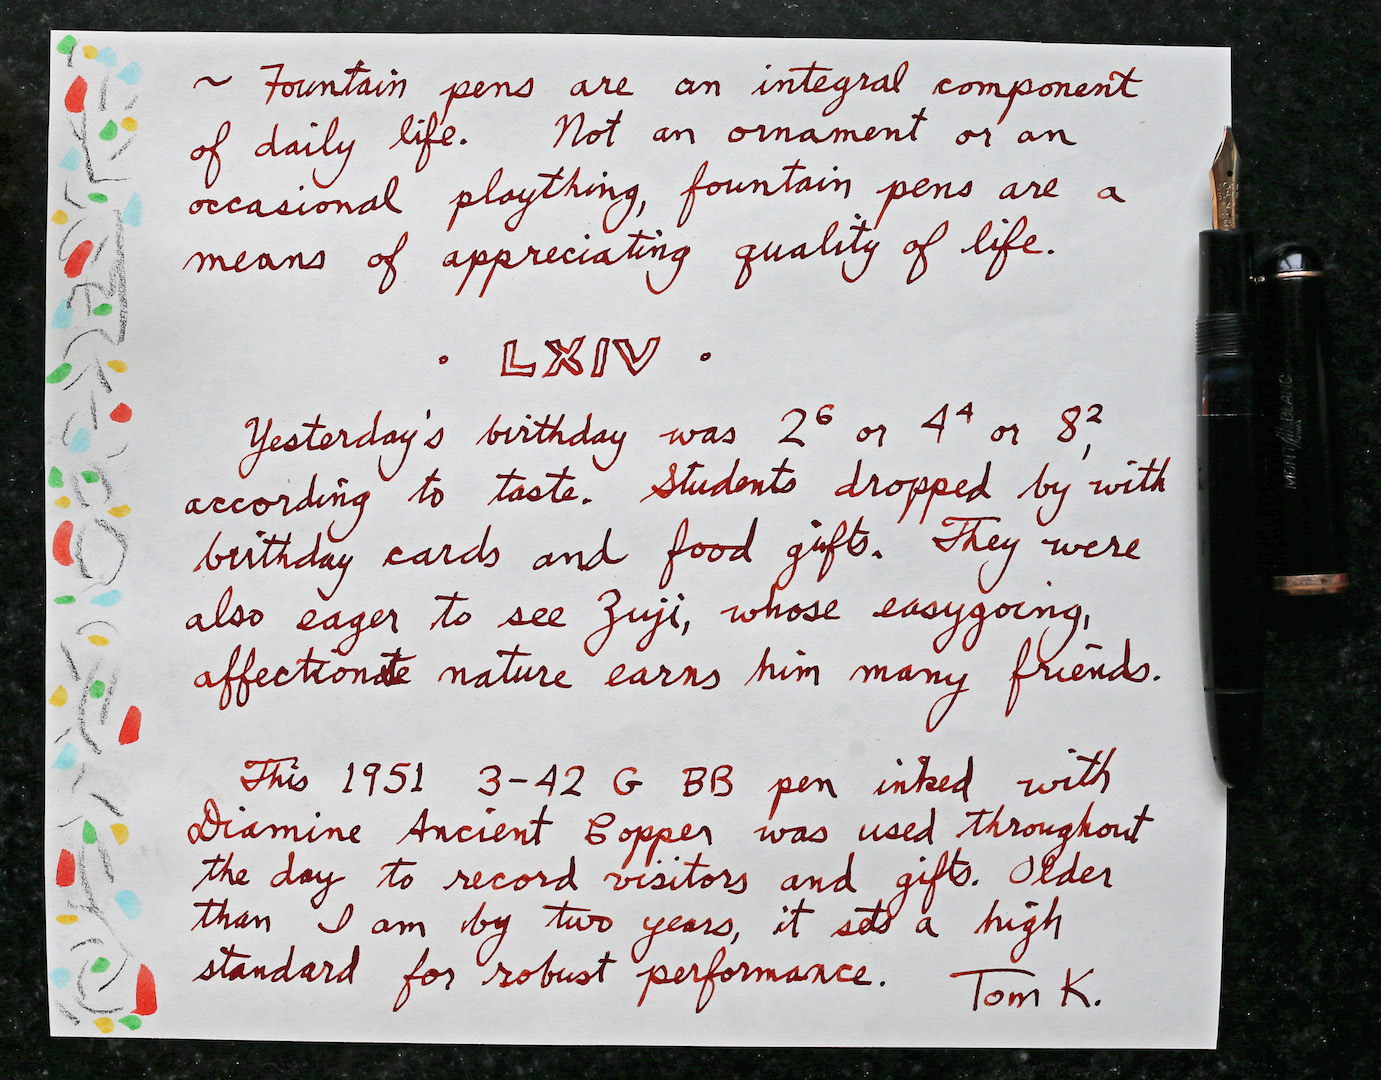 ~ Fountain pens are an integral component
of daily life. Not an ornament or an
occasional plaything, fountain pens are a
means of appreciating quality of life.
· LXIV ·
Yesterday's birthday was 2⁶ or 4⁴ or 8²,
according to taste. Students dropped by with
birthday cards and food gifts. They were
also eager to see Zuji, whose easygoing,
affectionate nature earns him many friends.
This 1951 3-42 G BB pen inked with
Diamine Ancient Copper was used throughout
the day to record visitors and gifts. Older
than I am by two years, it sets a high
standard for robust performance. Tom K.
MONTBLANC